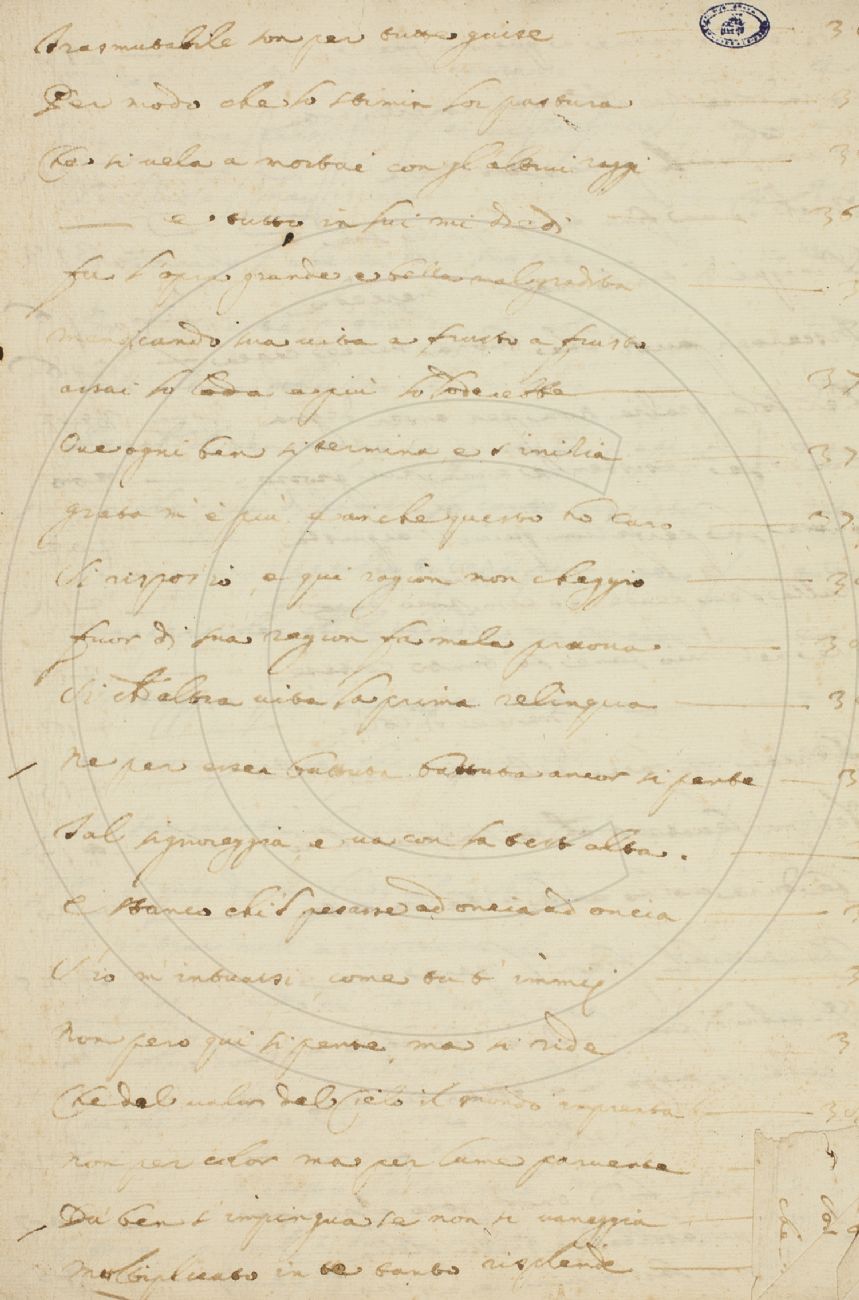 Trasmutabile son per tutte guise 3
Per modo che lo stimin lor pastura 3
Che si uela a mortai con gl' altrui raggi 3
e tutto in lui mi diedi 36
fu l'opra grande e bella mal gradita
mendicando sua uita a frusto a frusto
assai lo loda e più lo loderebbe 37
Oue ogni ben si termina e s'inilia 37
grata m' è più e anche questo ho caro 37
Si rispos' io e qui ragion non cheggio 3
fuor di sua region fa mala pruoua 3
Si ch' altra uita la prima relinqua 3
Ne per esser battuta battuta ancor si pente 3
Tal signoreggia e ua con la test alta.
E stanco chi 'l pesasse ad oncia ad oncia
S' io m' intuassi come tu t' immii 3
Non pero qui si pente ma si ride 3
Che del ualor del Cielo il mondo imprenta 3
non per color ma per lume paruente
Du' ben s' impingua se non si uaneggia
Moltiplicato in te tanto risplende
che